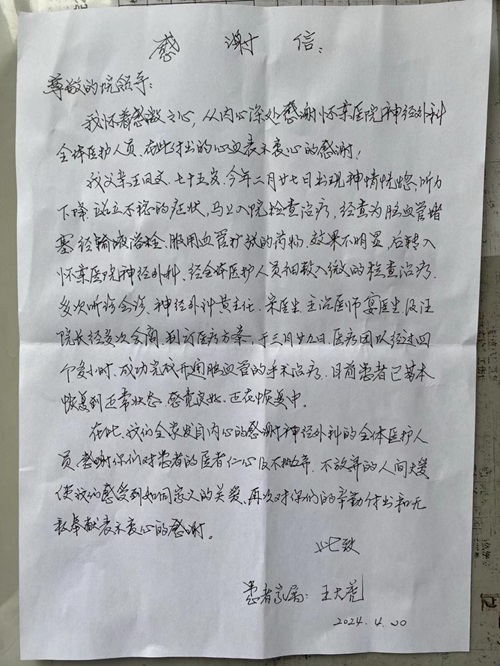 感谢信：
尊敬的院领导：
我怀着感激之心，从内心深处感谢怀莱医院神经外科
全体医护人员，在此付出的心血表示衷心的感谢。
我父亲王同文，七十五岁，今年二月廿七日出现神情恍惚，听力
下降，站立不稳的症状，马上入院检查治疗，经查为脑血管堵
塞，经输液溶栓、服用血管扩张的药物，效果不明显，后转入
怀莱医院神经外科，经全体医护人员细致入微的检查治疗，
多次听诊会诊，神经外科黄主任、宋医生、主治医师宴医生及汪
院长经多次会商，制订医疗方案，于三月廿九日，医疗团队经过四
个多小时，成功完成开通脑血管的手术治疗，目前患者已基本
恢复到正常状态，感觉良好，正在恢复中。
在此，我们全家发自内心的感谢神经外科的全体医护人
员，感谢你们对患者的医者仁心及不抛弃、不放弃的人间大爱
使我们感受到如同家人的关爱，再次对你们的辛勤付出和无
私奉献表示衷心的感谢。
此致
患者家属：王大
2024.4.20